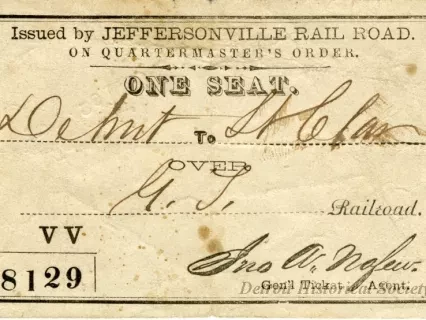 Issued by JEFFERSONVILLE RAIL ROAD.
ON QUARTERMASTER'S ORDER.
ONE SEAT.
Detroit To St Clair
OVER
G. T. Railroad.
VV
8129
Jno A.
Gen'l Ticket Agent.
Detroit Historical Society